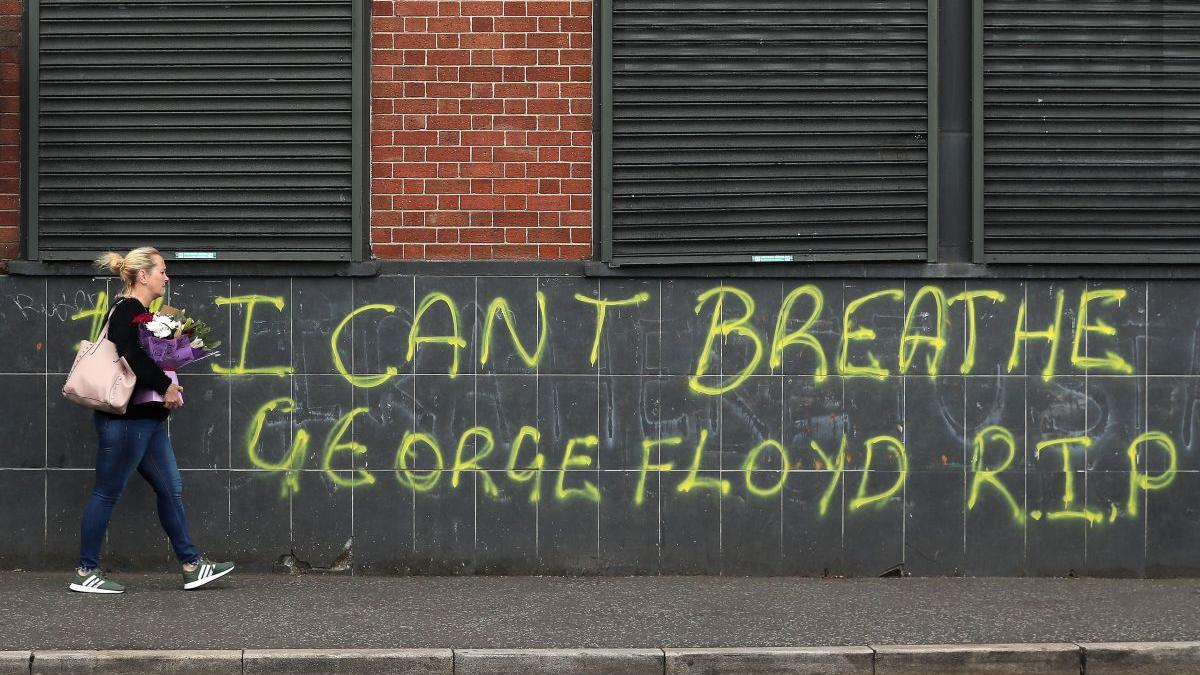 # I CANT BREATHE
GEORGE FLOYD R.I.P